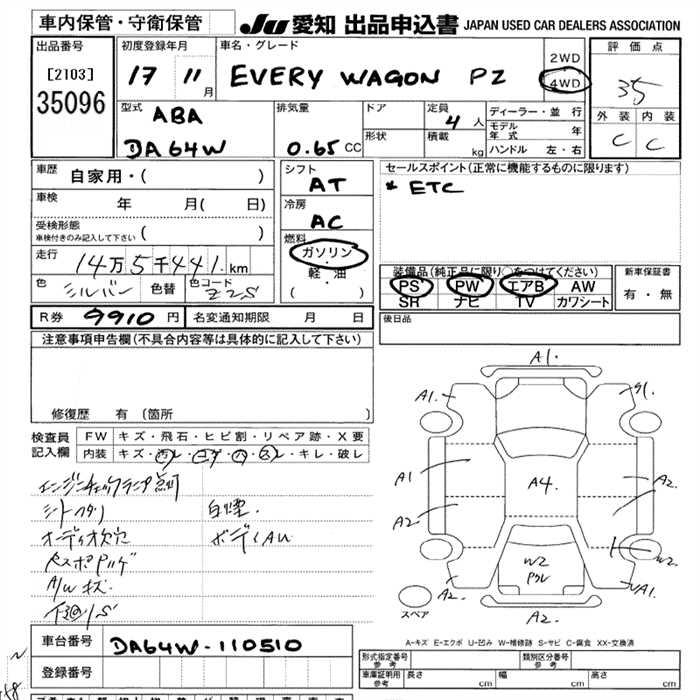 車内保管・守衛保管
JU 愛知 出品申込書
JAPAN USED CAR DEALERS ASSOCIATION
出品番号
[2103]
35096
初度登録年月
17 11月
車名・グレード
EVERY WAGON PZ
2WD
4WD
評価点
35
外装 内装
C C
型式
ABA
DA64W
排気量
0.65 CC
ドア
形状
定員
4 人
積載
kg
ディーラー・並行
モデル年式 年
ハンドル 左・右
車歴
自家用・( )
車検
年 月( 日)
受検形態
車検付きのみ記入して下さい ( )
走行
14万5千441 km
色
シルバー
色替
色コード
Z2S
シフト
AT
冷房
AC
燃料
ガソリン
・
軽・油
( )
セールスポイント(正常に機能するものに限ります)
* ETC
装備品(純正品に限り○をつけてください)
PS PW エアB AW
SR ナビ TV カワシート
新車保証書
有・無
R券 9910 円
名変通知期限 月 日
後日品
注意事項申告欄(不具合内容等は具体的に記入して下さい)
修復歴 有(箇所 )
検査員
記入欄
FW キズ・飛石・ヒビ割・リペア跡・X要
内装 キズ・汚レ・コゲ・穴・スレ・キレ・破レ
エンジンチェックランプ点灯
シートヘタリ
白煙.
オーディオ欠穴
ボディAU
A/Wキズ
下廻りS
車台番号
DA64W-110510
登録番号
A1.
A1.
A1.
A1
A2.
A4.
A2.
A2.
W2
W2.
A2.
A1.
A2.
スペア
A-キズ E-エクボ U-凹み W-補修跡 S-サビ C-腐食 XX-交換済
形式指定番号
参考
類別区分番号
参考
車庫証明用
参考
長さ cm
幅 cm
高さ cm